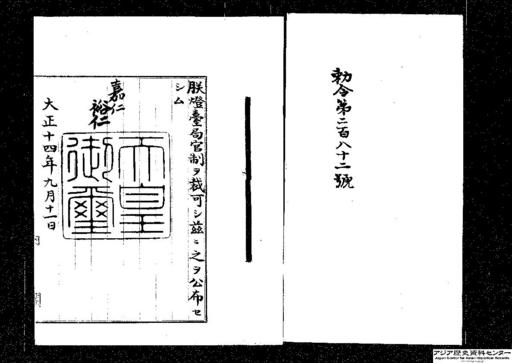 勅令第二百八十二號
朕燈臺局官制ヲ裁可シ茲ニ之ヲ公布セ
シム
嘉仁
裕仁
天皇
御璽
大正十四年九月十一日
アジア歴史資料センター
Japan Center for Asian Historical Records